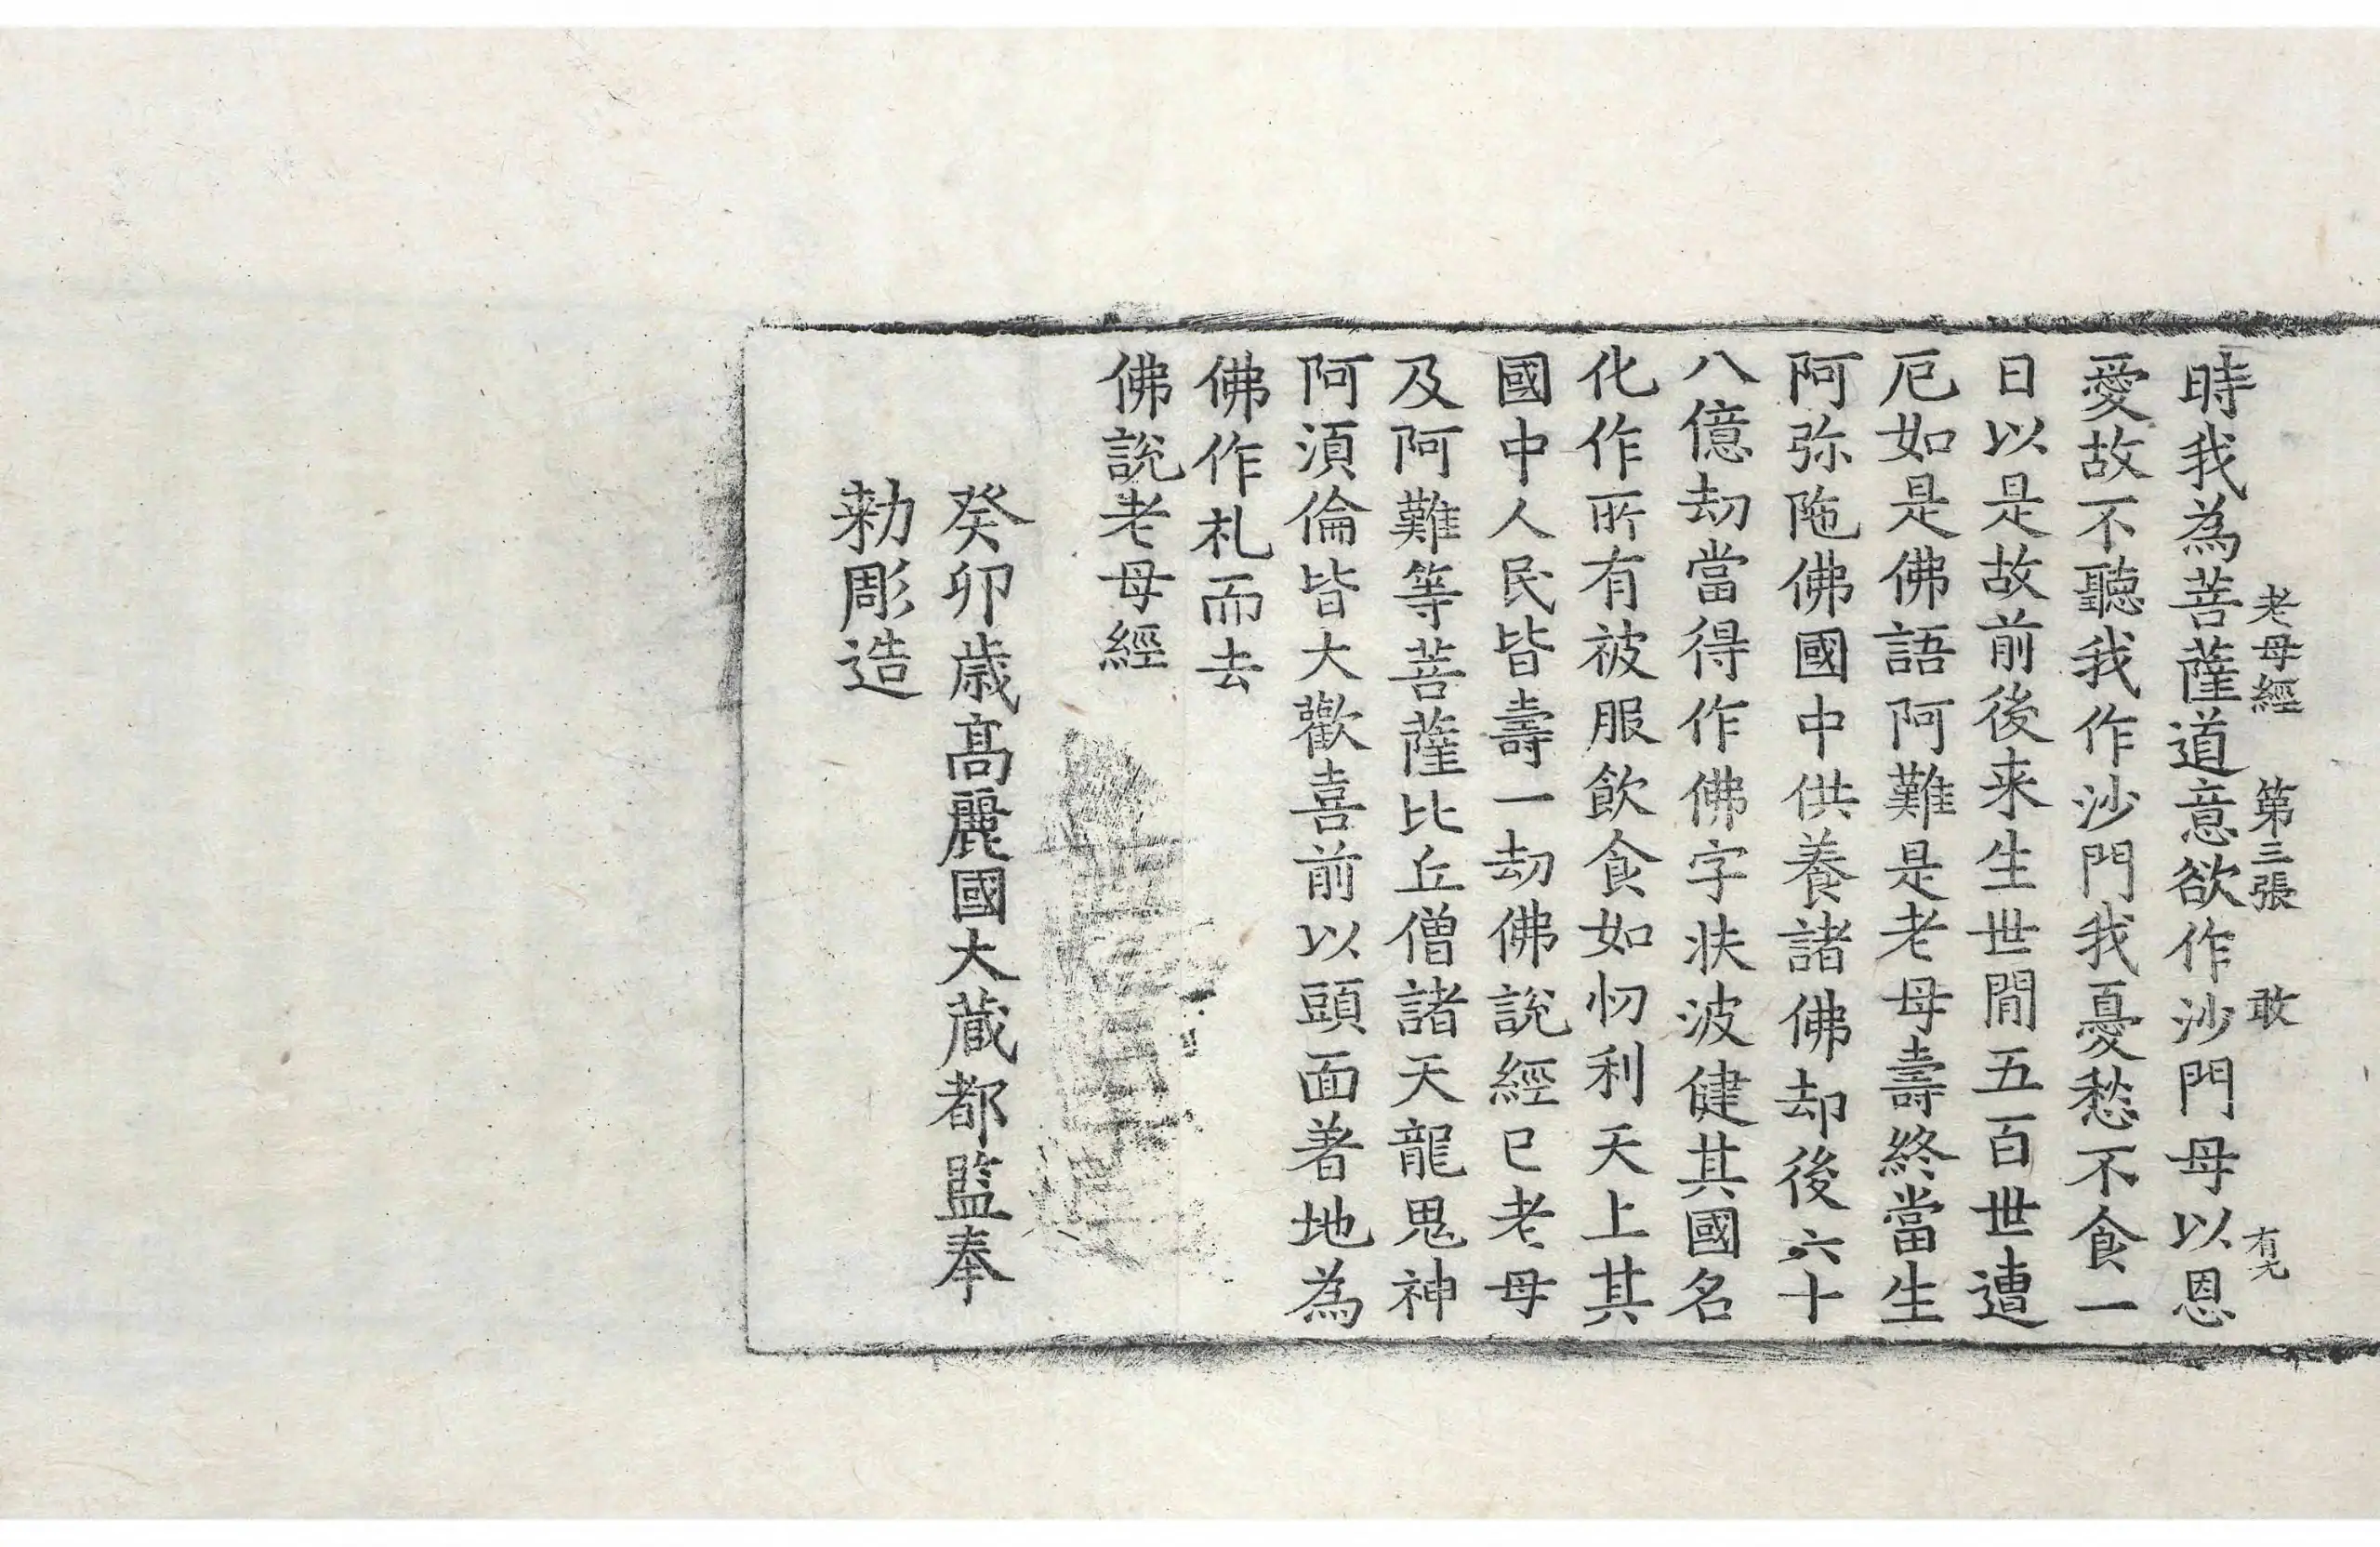 老母經 第三張 敢 有先
時我為菩薩道意欲作沙門母以恩
愛故不聽我作沙門我憂愁不食一
日以是故前後来生世間五百世遭
厄如是佛語阿難是老母壽終當生
阿弥陁佛國中供養諸佛却後六十
八億劫當得作佛字扶波健其國名
化作所有被服飲食如忉利天上其
國中人民皆壽一劫佛說經已老母
及阿難等菩薩比丘僧諸天龍鬼神
阿須倫皆大歡喜前以頭面著地為
佛作礼而去
佛說老母經
癸卯歳髙麗國大蔵都監奉
勑彫造